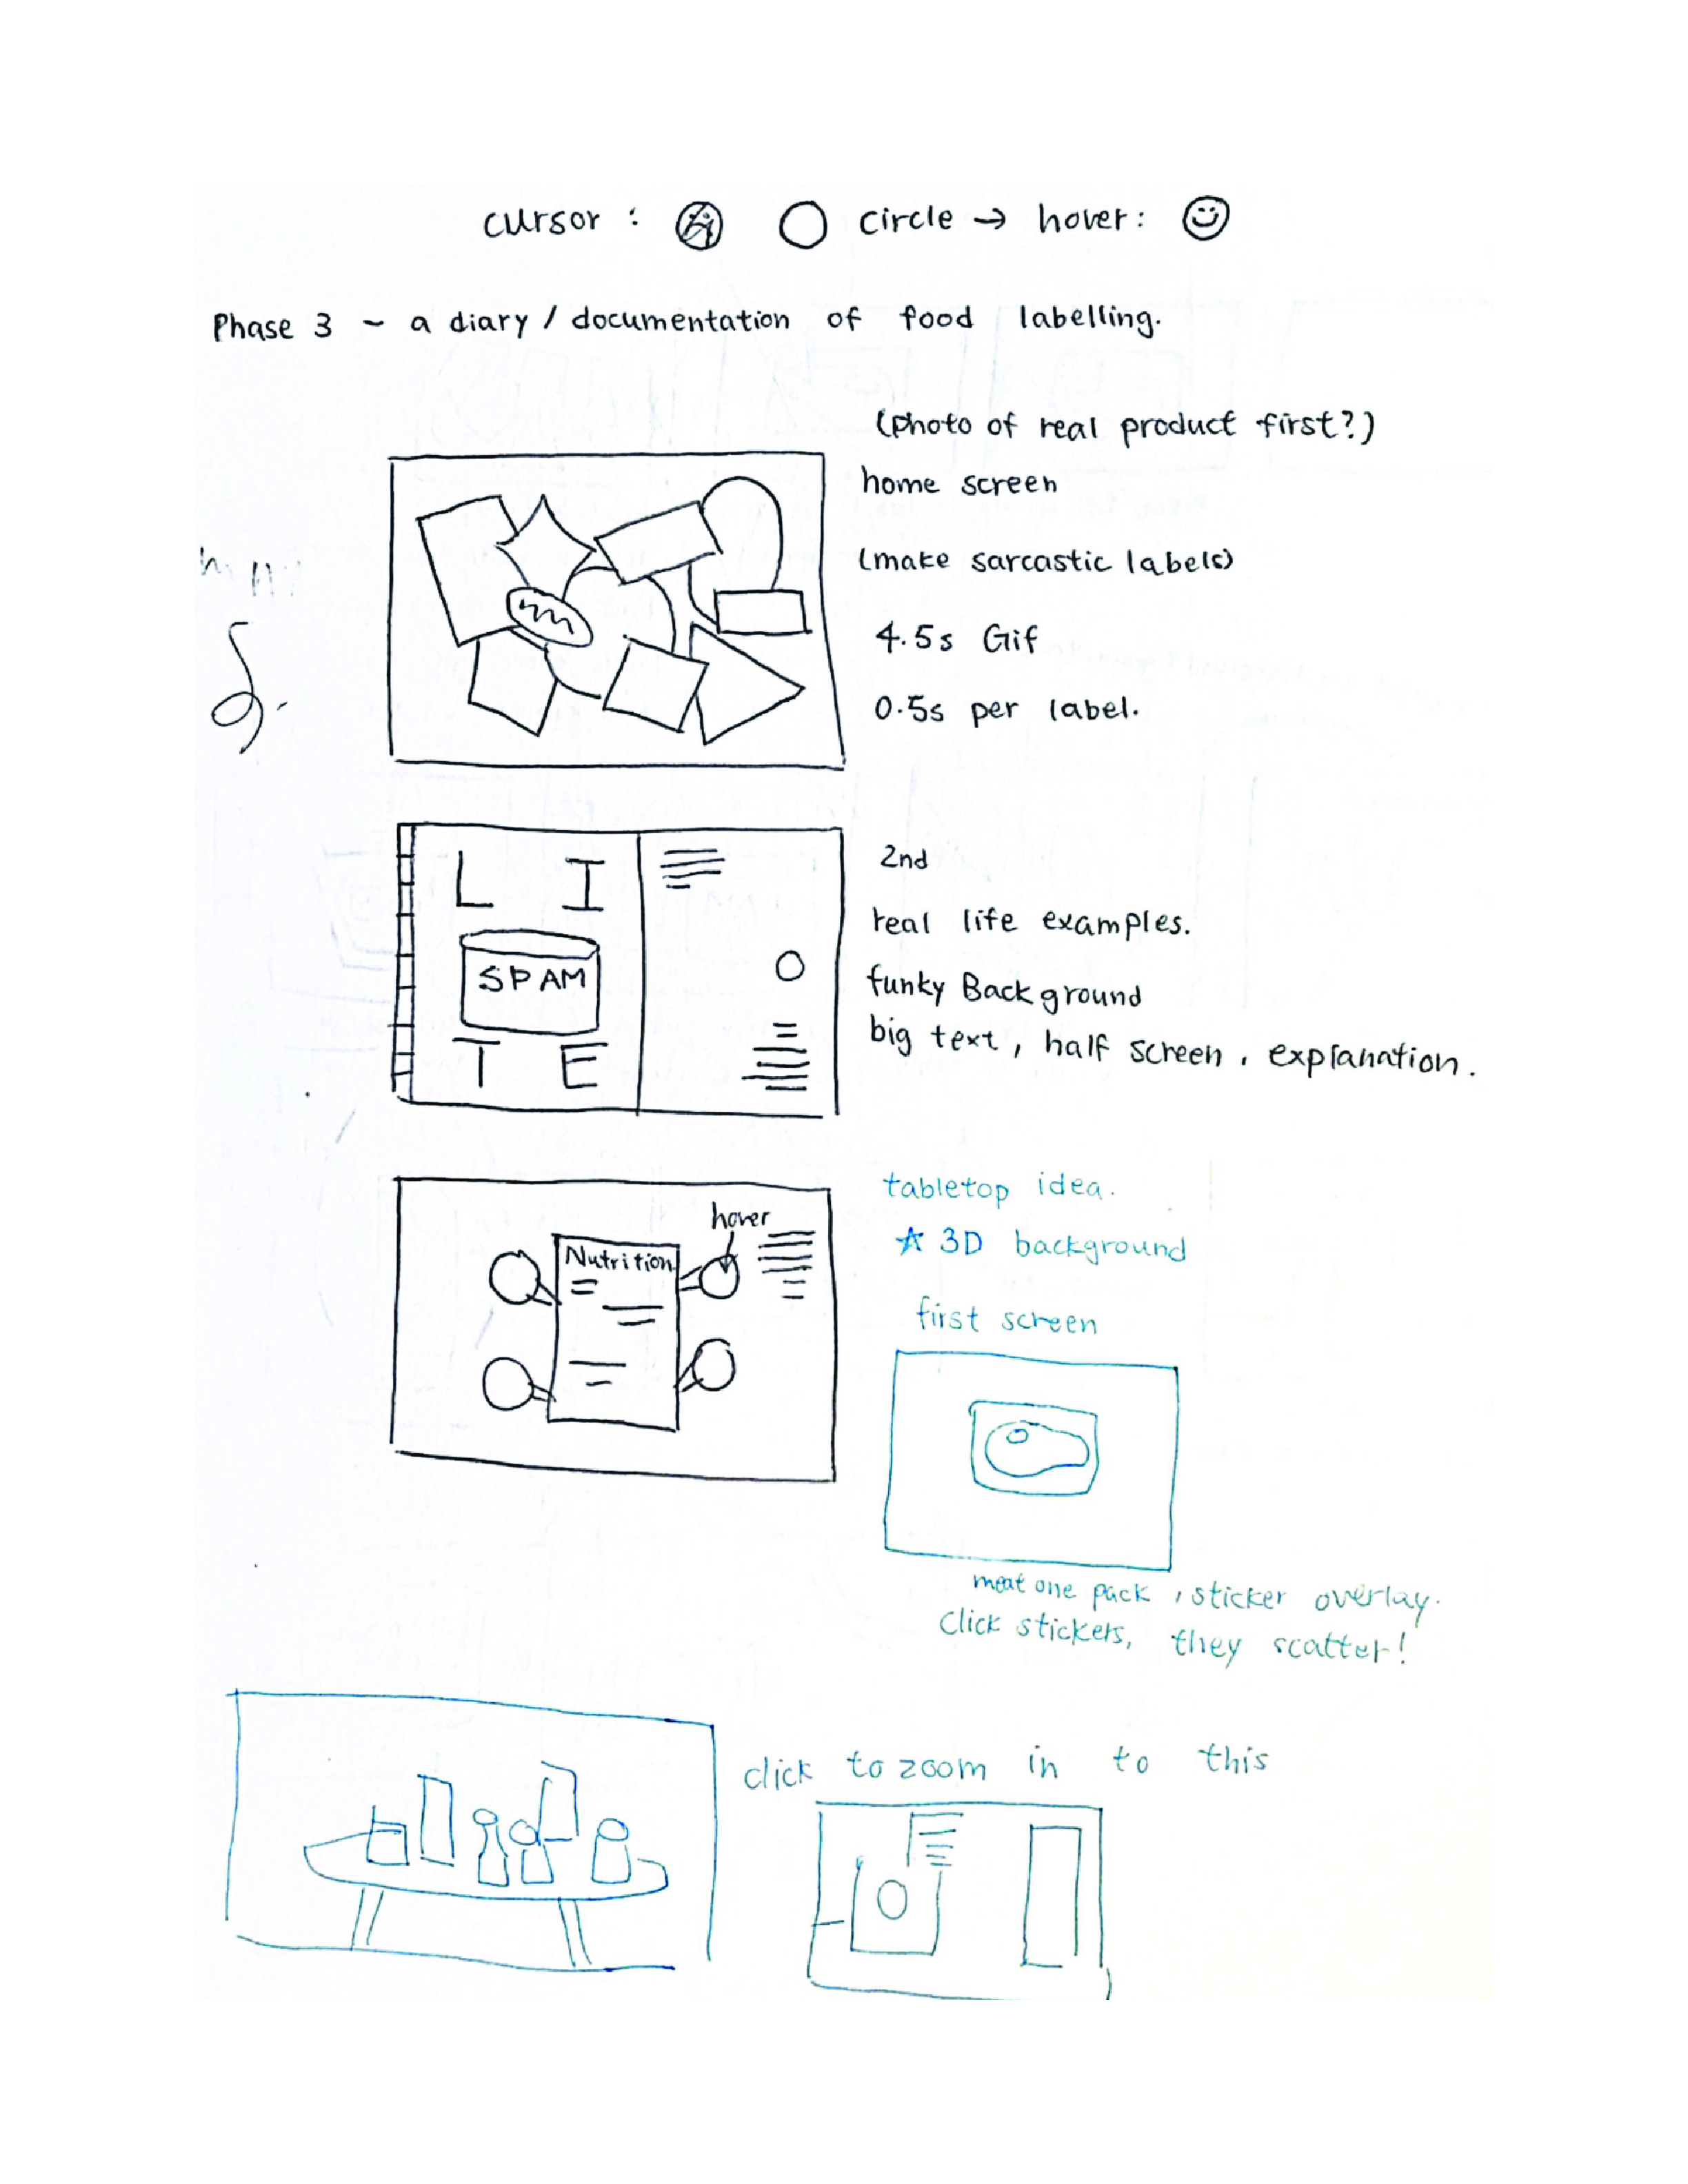 cursor : circle → hover :
Phase 3 ~ a diary / documentation of food labelling.
(photo of real product first?)
home screen
(make sarcastic labels)
4.5s Gif
0.5s per label.
L I
SPAM
T E
2nd
real life examples.
funky Background
big text, half screen, explanation.
hover
Nutrition
tabletop idea.
☆ 3D background
first screen
meat one pack, sticker overlay.
Click stickers, they scatter!
click to zoom in to this